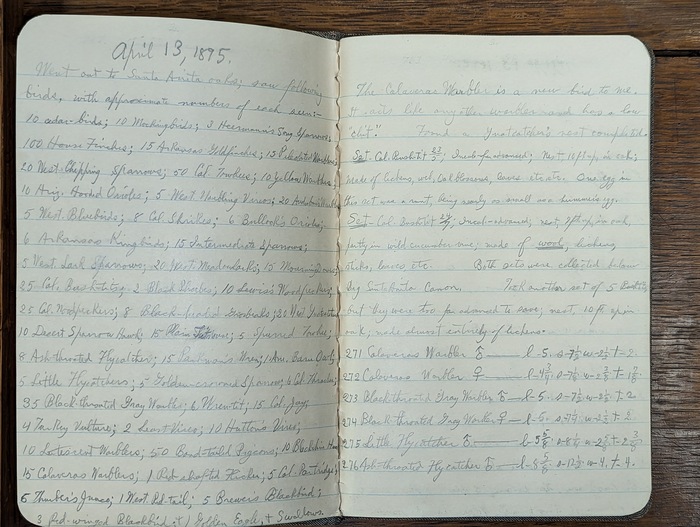 April 13, 1895.
Went out to Santa Anita oaks; saw following
birds, with approximate numbers of each seen:-
10 cedar-birds; 10 Mockingbirds; 3 Heermann's Song Sparrows;
100 House Finches; 15 Arkansas Goldfinches; 15
20 West. Chipping Sparrows; 50 Cal. Towhees; 10 Yellow Warblers;
10 Ariz. Hooded Orioles; 5 West. Warbling Vireos; 20 Audubon's Warblers
5 West. Bluebirds; 8 Cal. Shrikes; 6 Bullock's Orioles;
6 Arkansas Kingbirds; 15 Intermediate Sparrows;
5 West. Lark Sparrows; 20 West. Meadowlarks; 15 Mourning Doves;
35 Cal. Bushtits; 2 Black Phoebes; 10 Lewis's Woodpeckers;
25 Cal. Woodpeckers; 8 Black-headed Grosbeaks; 20
10 Desert Sparrow Hawk; 15 Plain Titmouse; 5 Spurred Towhee;
8 Ash-throated Flycatcher; 15 Parkman's Wren; 1 Am. Barn Owl;
5 Little Flycatchers; 5 Golden-crowned Sparrows; 6 Cal. Thrasher;
35 Black-throated Gray Warbler; 6 Wren-tit; 15 Cal. Jay;
4 Turkey Vulture; 2 Least Vireo; 10 Hutton's Vireo;
10 Lutescent Warblers; 50 Band-tailed Pigeons; 10 Blackchin. Hum.
15 Calaveras Warblers; 1 Red-shafted Flicker; 5 Cal. Partridge;
6 Thurber's Junco; 1 West. Red-tail; 5 Brewer's Blackbird;
3 Red-winged Blackbird; 1 Golden Eagle; & Swallows.
The Calaveras Warbler is a new bird to me.
It acts like any other warbler and has a low
"chit." Found a Gnatcatcher's nest completed.
Set- Cal. Bushtit Incub-advanced; Nest, 18 ft. up in oak;
made of lichens, wool, leaves etc. etc. One egg in
this set was a runt, being nearly as small as a hummer's egg.
Set- Cal. Bushtit incub-advanced; nest, 7 ft. up in oak,
partly in wild cucumber vine; made of wool, lichens,
sticks, leaves etc. Both sets were collected below
Big Santa Anita Canon. Took another set of 5 Bushtit
but they were too far advanced to save; nest, 10 ft. up in
oak; made almost entirely of lichens.
271 Calaveras Warbler ♂ — l-5.
272 Calaveras Warbler ♀ —
273 Black-throated Gray Warbler ♂ — l-5.
274 Black-throated Gray Warbler ♀ — l-5.
275 Little Flycatcher ♂ —
276 Ash-throated Flycatcher ♂ —